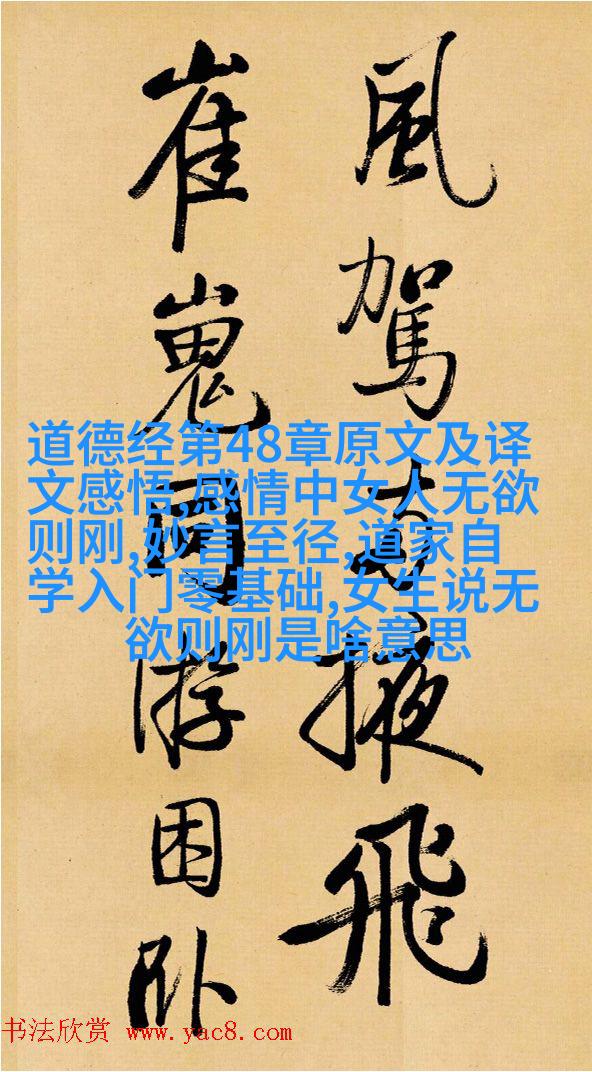 風駕掖飛
崔嵬同游困卧
道德经第48章原文及译
文感悟,感情中女人无欲
则刚,妙言至径,道家自
学入门零基础,女生说无
欲则刚是啥意思
书法欣赏 www.yac8.com